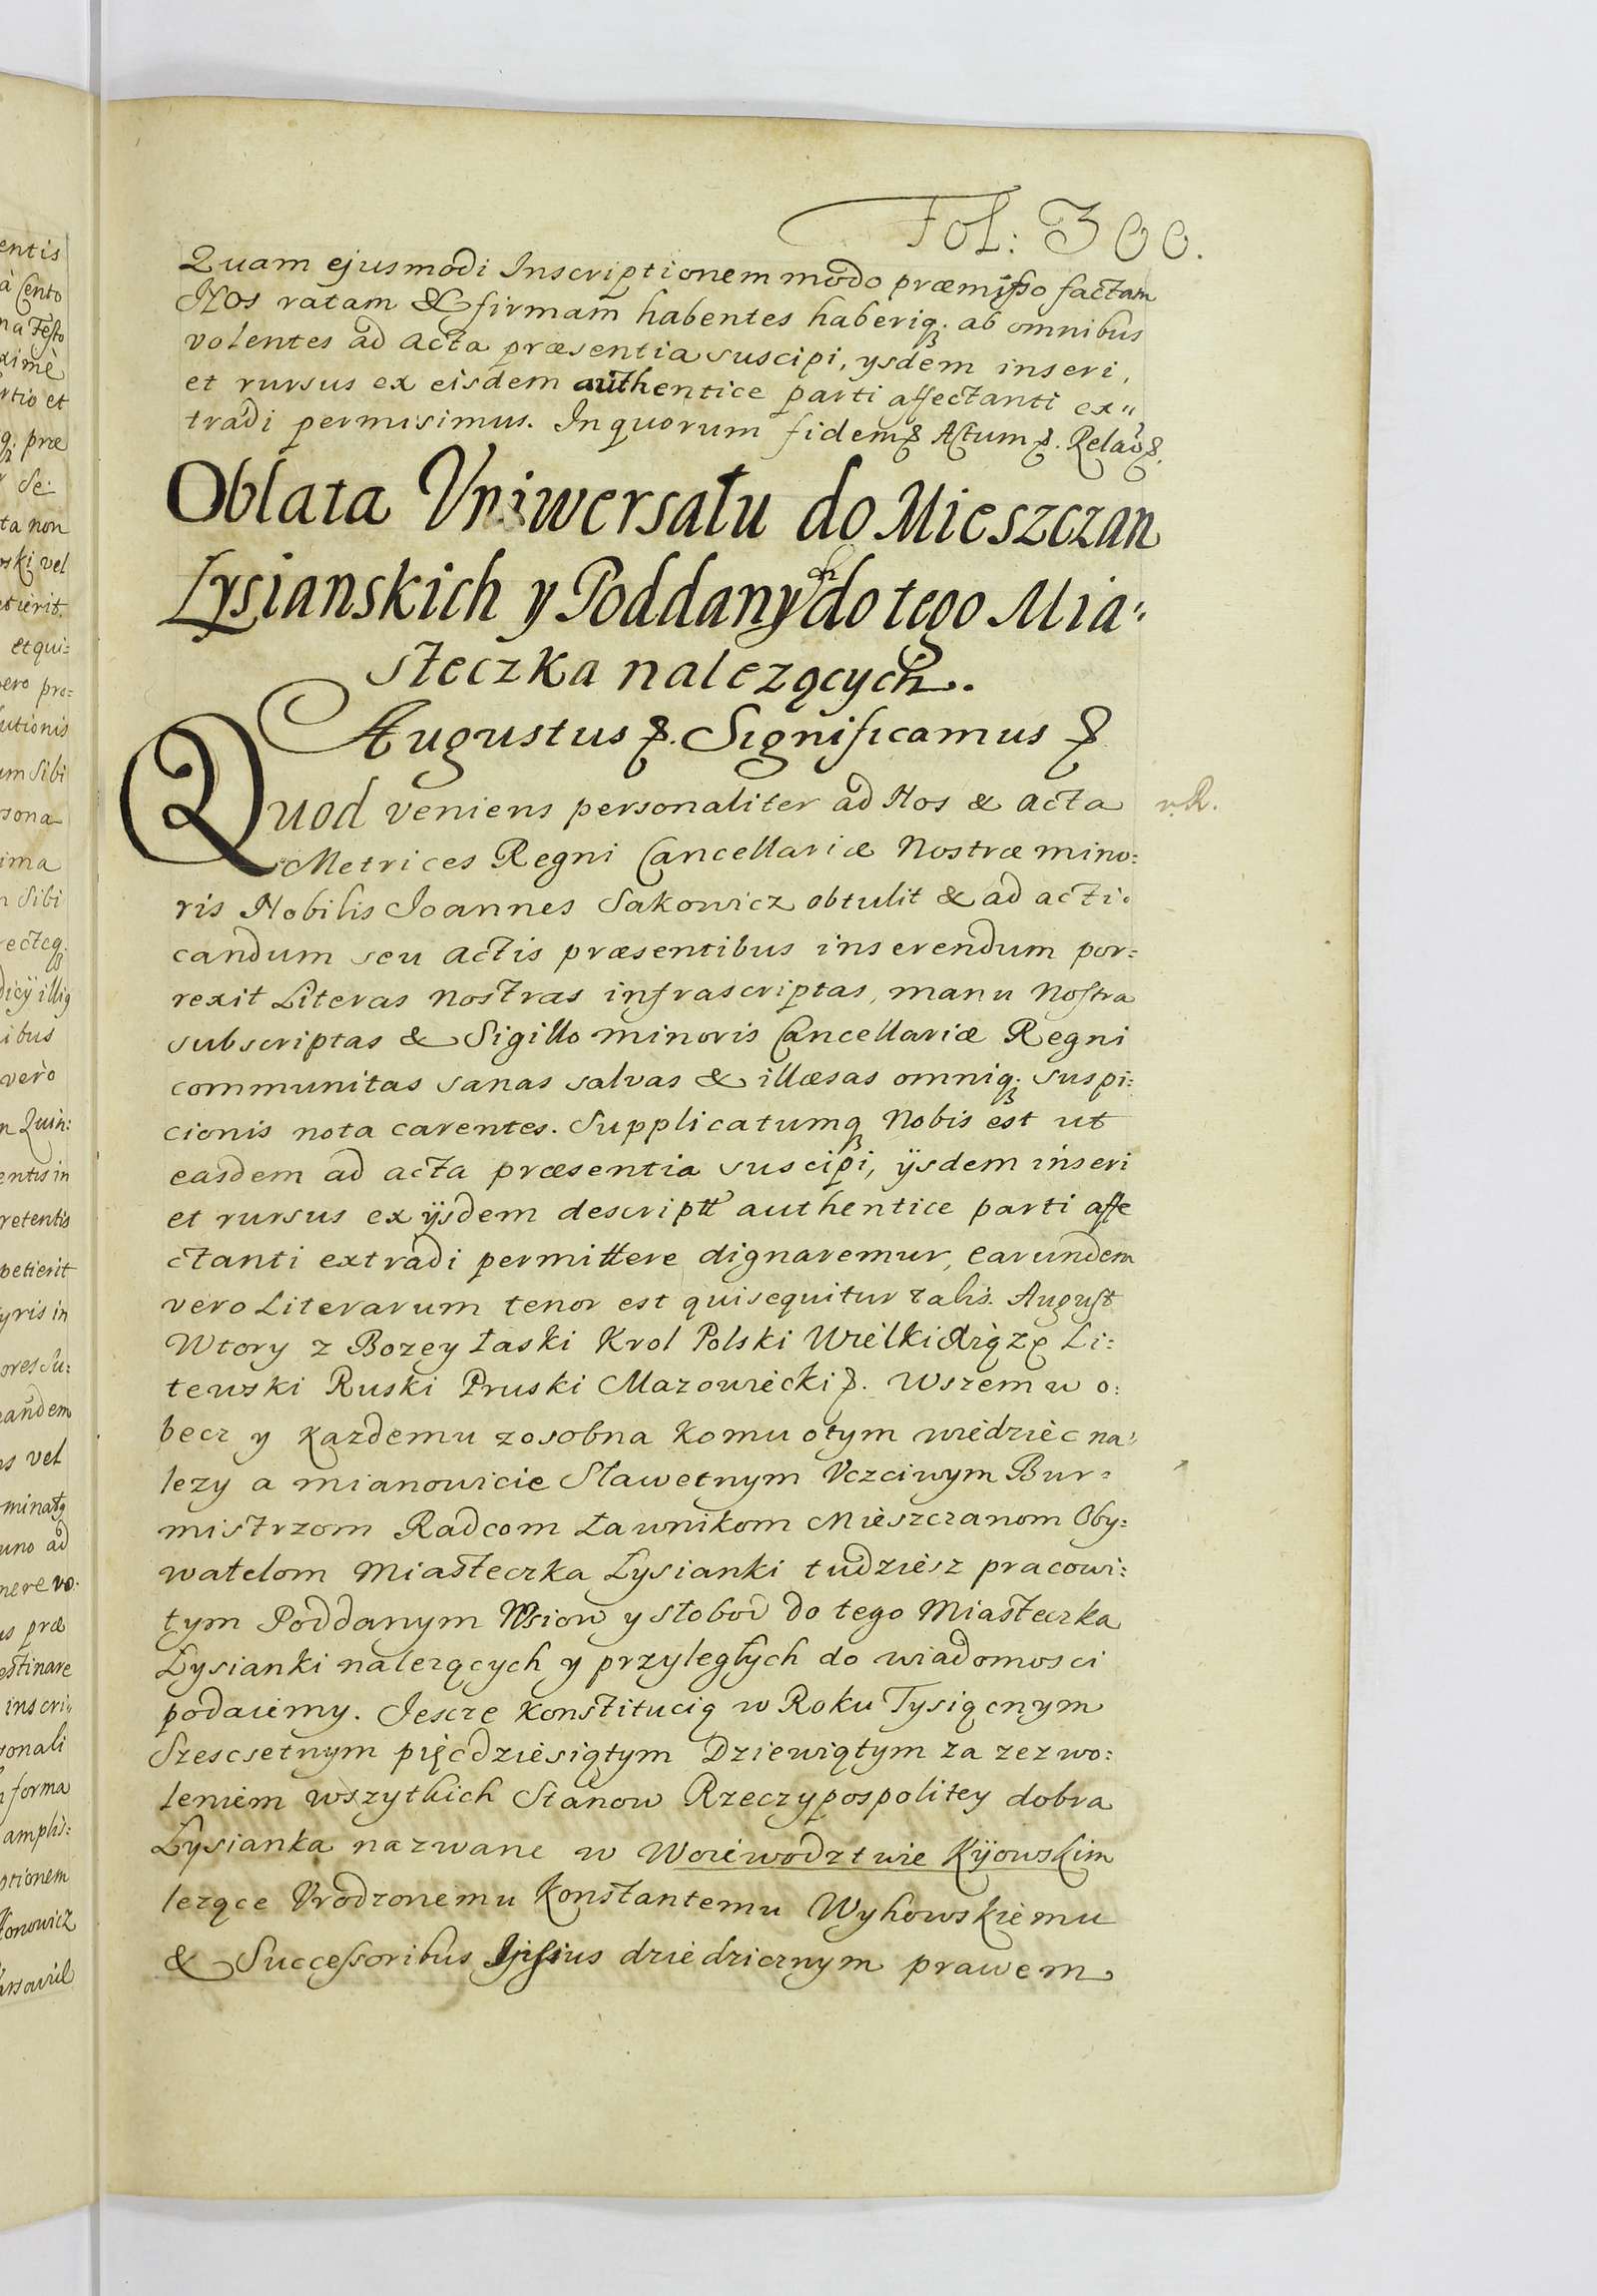 Fol: 300.
Quam ejusmodi Inscriptionem modo præmisso factam
Nos ratam & firmam habentes haberiq. ab omnibus
volentes ad acta præsentia suscipi, ysdem inseri,
et rursus ex eisdem authentice parti affectanti ex"
tradi permisimus. In quorum fidem &. Actum &. Rela° &.
Oblata Vniwersału do Mieszczan
Lysianskich y Poddanych do tego Mia"
steczka nalezących.
Augustus &. Significamus &
Quod veniens personaliter ad Nos & acta
v.R.
Metrices Regni Cancellariæ Nostræ mino:
ris Nobilis Joannes Sakowicz obtulit & ad acti:
candum seu actis præsentibus inserendum por:
rexit Literas nostras infrascriptas, manu Nostra
subscriptas & Sigillo minoris Cancellariæ Regni
communitas sanas salvas & illæsas omniq. suspi:
cionis nota carentes. Supplicatumq Nobis est ut
easdem ad acta præsentia suscipi, ÿsdem inseri
et rursus ex ÿsdem descriptt authentice parti affe
ctanti extradi permittere dignaremur, earundem
vero Literarum tenor est qui sequitur talis. August
Wtory z Bozey Łaski Krol Polski Wielki Xiąże Li:
tewski Ruski Pruski Mazowiecki &. Wszem w o:
becz y Kazdemu zosobna komu otym wiedziec na:
lezy a mianowicie Sławetnym Vczciwym Bur:
mistrzom Radcom Ławnikom Mieszczanom Oby:
watelom Miasteczka Lysianki tudziesz pracowi:
tym Poddanym Wsiow y słobod do tego Miasteczka
Lysianki nalezących y przyległych do wiadomosci
podaiemy. Jescze Konstitucią w Roku Tysiącnym
Szescsetnym pięcdziesiątym Dziewiątym za zezwo:
leniem wszytkich Stanow Rzeczypospolitey dobra
Lysianka nazwane w Woiewodztwie Kijowskim
lezące Vrodzonemu Konstantemu Wyhowskiemu
& Successoribus Ipsius dziedzicznym prawem
entis
à Cento
na Testo
ximè
rtio et
q. præ
de:
ta non
ski vel
etierit.
et qui:
vero pro:
lutionis
um Sibi
sona
ima
n Sibi
recteq.
ibus
verò
n Quin:
entis in
retentis
petierit
yris in
ores Su:
eandem
as vel
uno ad
nere vo.
us præ
estinare
inscri"
sonali
forma
ampli:
ptionem